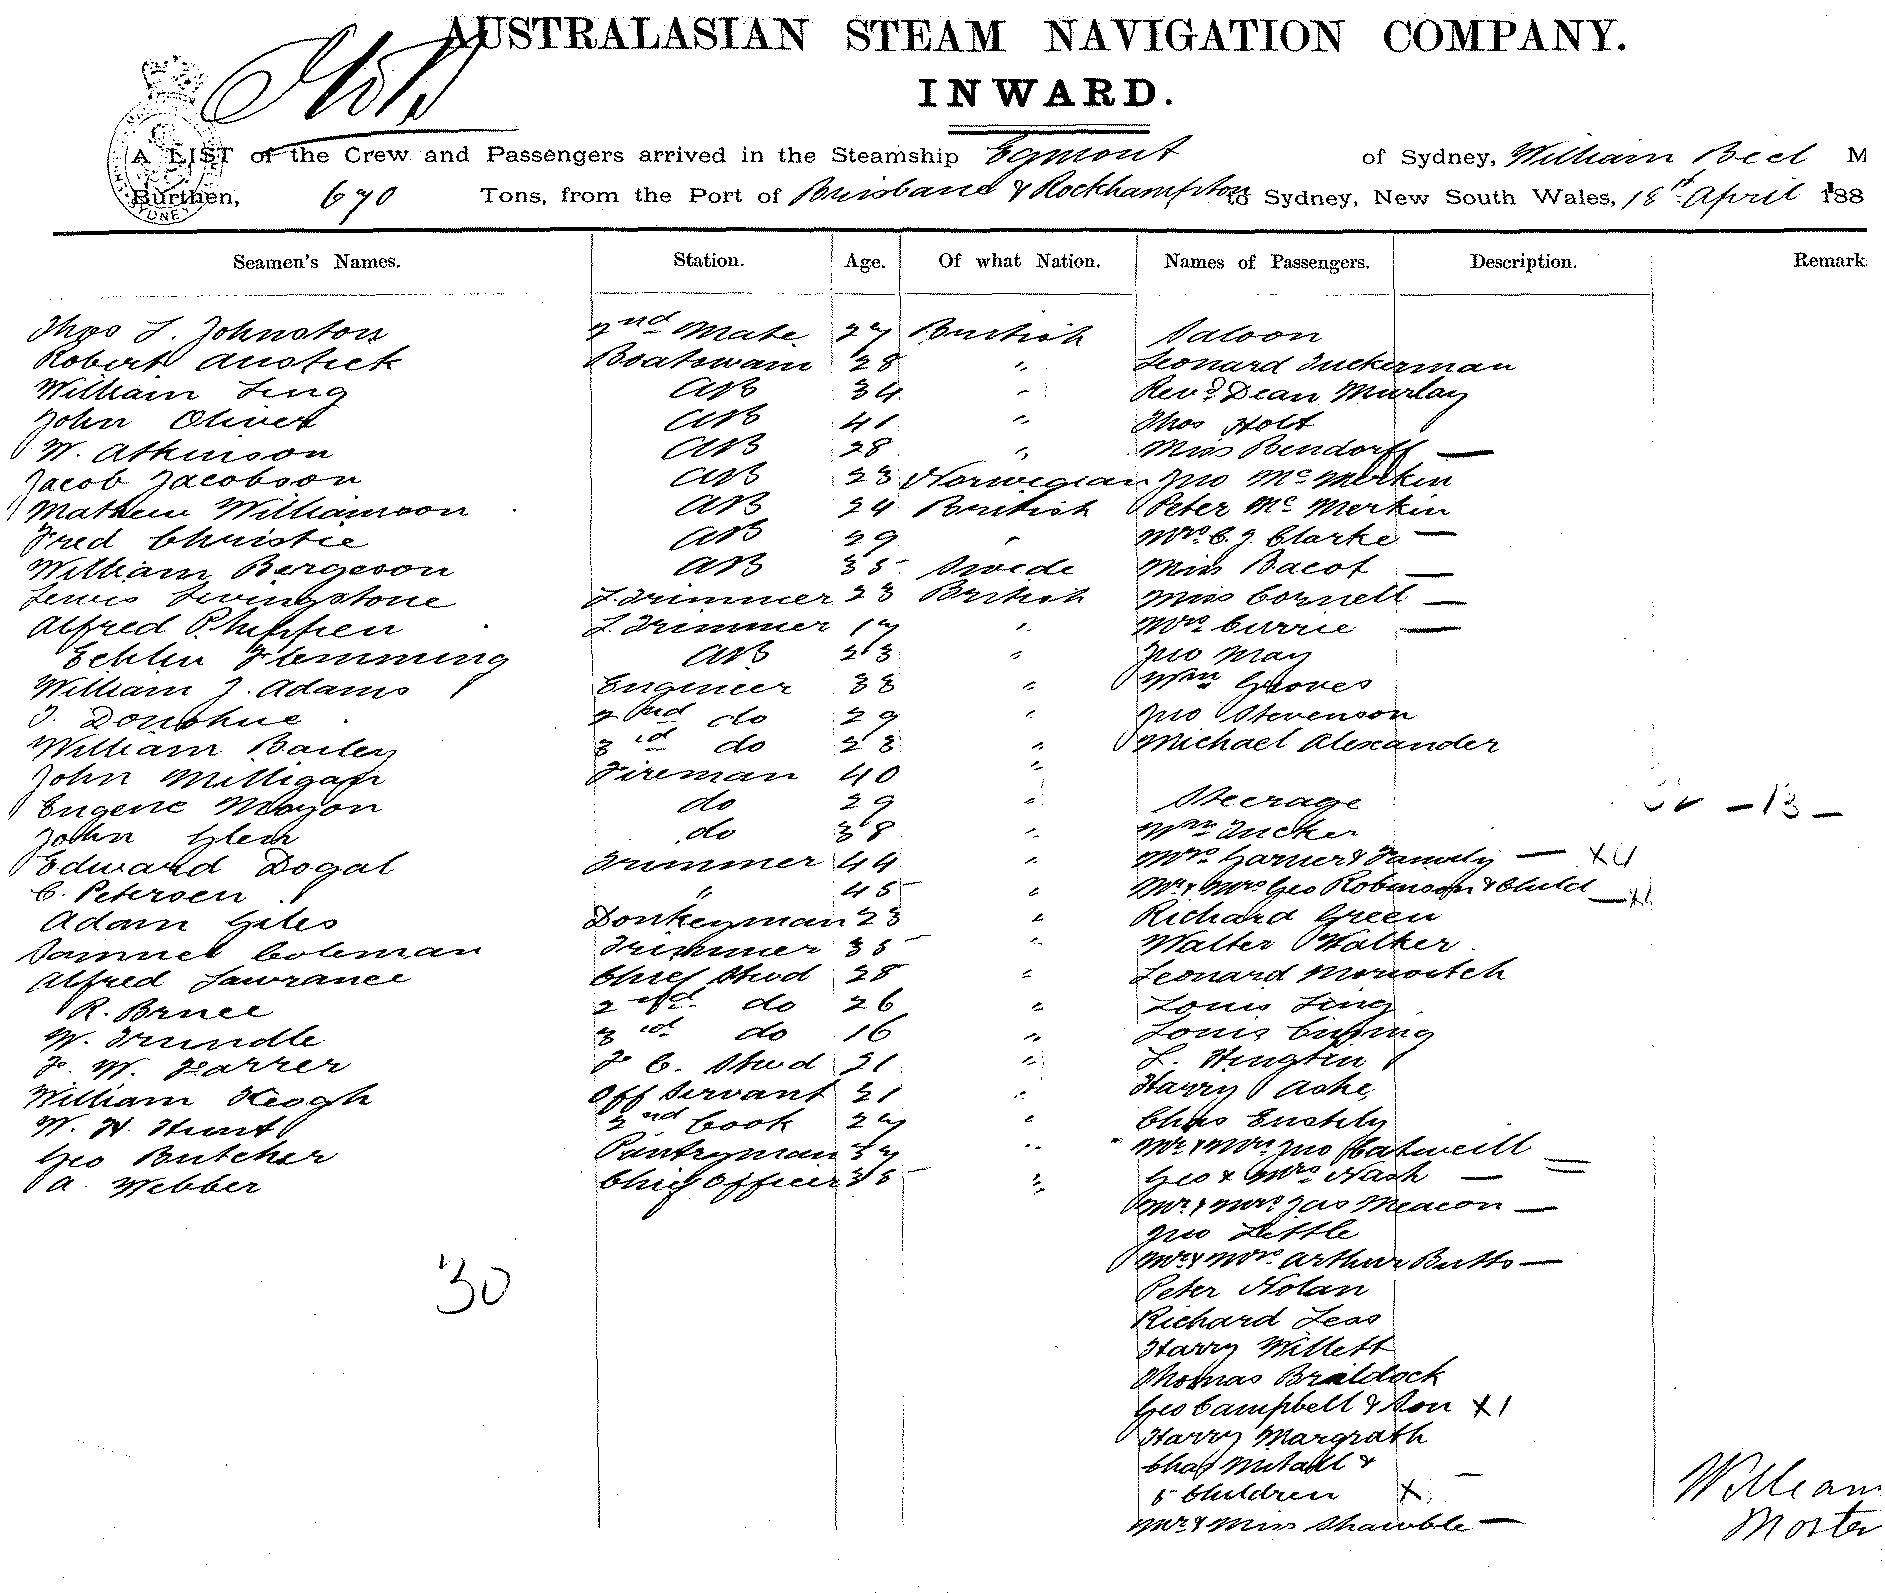 AUSTRALASIAN STEAM NAVIGATION COMPANY.
INWARD.
A LIST of the Crew and Passengers arrived in the Steamship Egmont of Sydney, William Beel M
Burthen, 690 Tons, from the Port of Brisbane & Rockhampton to Sydney, New South Wales, 18th April 188
Seamen's Names. Station. Age. Of what Nation. Names of Passengers. Description. Remark
Thos L. Johnston 2nd Mate 27 British Saloon
Robert Austick Boatswain 28 " Leonard Tuckerman
William Ling AB 34 " Revd Dean Murlay
John Oliver AB 41 " Thos Holt
W. Atkinson AB 28 " Miss Bendorff —
Jacob Jacobson AB 23 Norwegian Jno Mc Merkin
Mathew Williamson AB 24 British Peter Mc Merkin
Fred Christie AB 29 " Mrs C. J. Clarke —
William Bergeson AB 35 Swede Miss Bacot —
Lewis Livingstone L. Trimmer 23 British Miss Cornell —
Alfred Phippen L. Trimmer 17 " Mrs Currie —
Echlin Flemming AB 23 " Jno May
William J. Adams Engineer 38 " Wm Groves
T. Donohue 2nd do 29 " Jno Stevenson
William Bailey 3rd do 28 " Michael Alexander
John Milligan Fireman 40 "
Eugene Moyon do 29 " Steerage — 13 —
John Glen do 38 " Wm Tucker
Edward Dogal Trimmer 44 " Mrs Garner & Family — X4
C. Petersen " 45 " Mr & Mrs Geo Robinson & Child — X1
Adam Giles Donkeyman 23 " Richard Green
Samuel Coleman Trimmer 35 " Walter Walker
Alfred Lawrance Chief Stwd 28 " Leonard
R. Bruce 2nd do 26 " Louis Ling
W. Trundle 3rd do 16 " Louis
F. W. Farrer F. C. Stwd 21 " L.
William Keogh Off Servant 21 " Harry Ashe
W. H. Hunt 2nd Cook 27 " Chas
Geo Butcher Pantryman 37 " Mr & Mrs Jno
A. Webber Chief Officer 35 " Geo & Mrs Nash —
Mr & Mrs Jas Meacon —
Jno Little
Mr & Mrs Arthur Butts —
30
Peter Nolan
Richard Leas
Harry Willett
Thomas Braldock
Geo Campbell & Son X1
Harry Margrath
Chas &
5 Children X
Mr & Miss Shamble —
William
Master